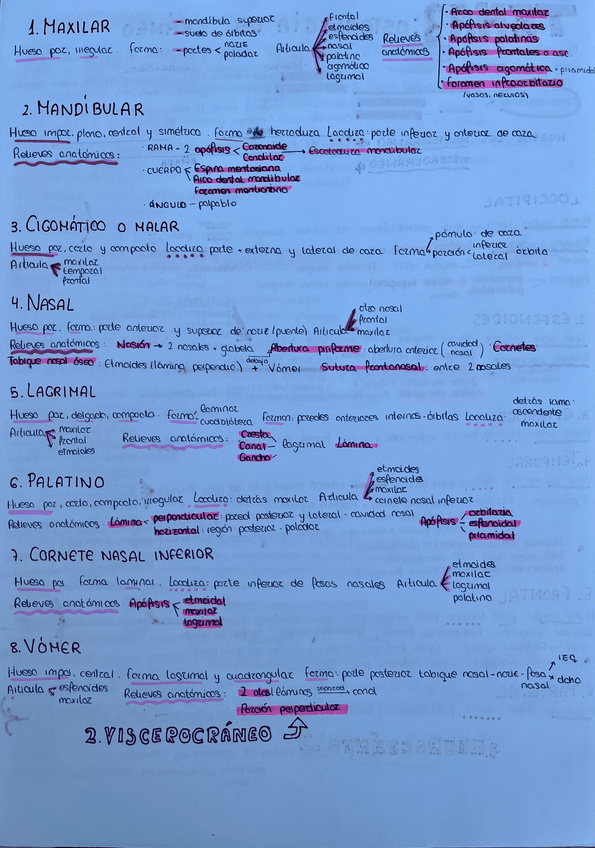 1. MAXILAR
Hueso par, irregular. forma:
- mandíbula superior
- suelo de órbitas
- partes < nariz
paladar
Articula
frontal
etmoides
esfenoides
nasal
palatino
cigomático
lagrimal
Relieves anatómicos
· Arco dental maxilar
· Apófisis alveolares
· Apófisis palatinas
· Apófisis frontales o asc
· Apófisis cigomática · piramidal
· foramen infraorbitario
(vasos, nervios)
2. MANDÍBULAR
Hueso impar, plano, central y simétrico. forma de herradura Localiza: parte inferior y anterior de cara
Relieves anatómicos:
· RAMA - 2 apófisis < Coronoide
Condilar
→ Escotadura mandibular
· CUERPO
Espina mentoniana
Arco dental mandibular
foramen mentoniano
· ÁNGULO - palpable
3. CIGOMÁTICO O MALAR
Hueso par, corto y compacto localiza: parte + externa y lateral de cara forma
pómulo de cara
porción < inferior
lateral órbita
Articula
maxilar
temporal
frontal
4. NASAL
Hueso par. forma: parte anterior y superior de nariz (puente) Articula
otro nasal
frontal
maxilar
Relieves anatómicos: Nasión → 2 nasales + glabela Abertura piriforme: abertura anterior (cavidad nasal) Cornetes
Tabique nasal óseo: Etmoides (lámina perpendic) + debajo Vómer Sutura frontonasal: entre 2 nasales
5. LAGRIMAL
Hueso par, delgado, compacto. forma: laminar
cuadrilátera
forman: paredes anteriores internas órbitas Localiza:
detrás rama
ascendente
maxilar
Articula
maxilar
frontal
etmoides
Relieves anatómicos:
Cresta
Canal
Gancho
lagrimal Lámina
6. PALATINO
Hueso par, corto, compacto, irregular Localiza: detrás maxilar Articula
etmoides
esfenoides
maxilar
cornete nasal inferior
Relieves anatómicos: Lámina < perpendicular: pared posterior y lateral - cavidad nasal
horizontal: región posterior - paladar
Apófisis
orbitaria
esfenoidal
piramidal
7. CORNETE NASAL INFERIOR
Hueso par. forma laminar. Localiza: parte inferior de fosas nasales Articula
etmoides
maxilar
lagrimal
palatino
Relieves anatómicos: Apófisis
etmoidal
maxilar
lagrimal
8. VÓMER
Hueso impar, central. forma lagrimal y cuadrangular forma: parte posterior tabique nasal - nariz - fosa nasal
izq
dcho
Articula < esfenoides
maxilar
Relieves anatómicos: 2 alas/láminas separadas canal
Porción perpendicular
2. VISCEROCRÁNEO